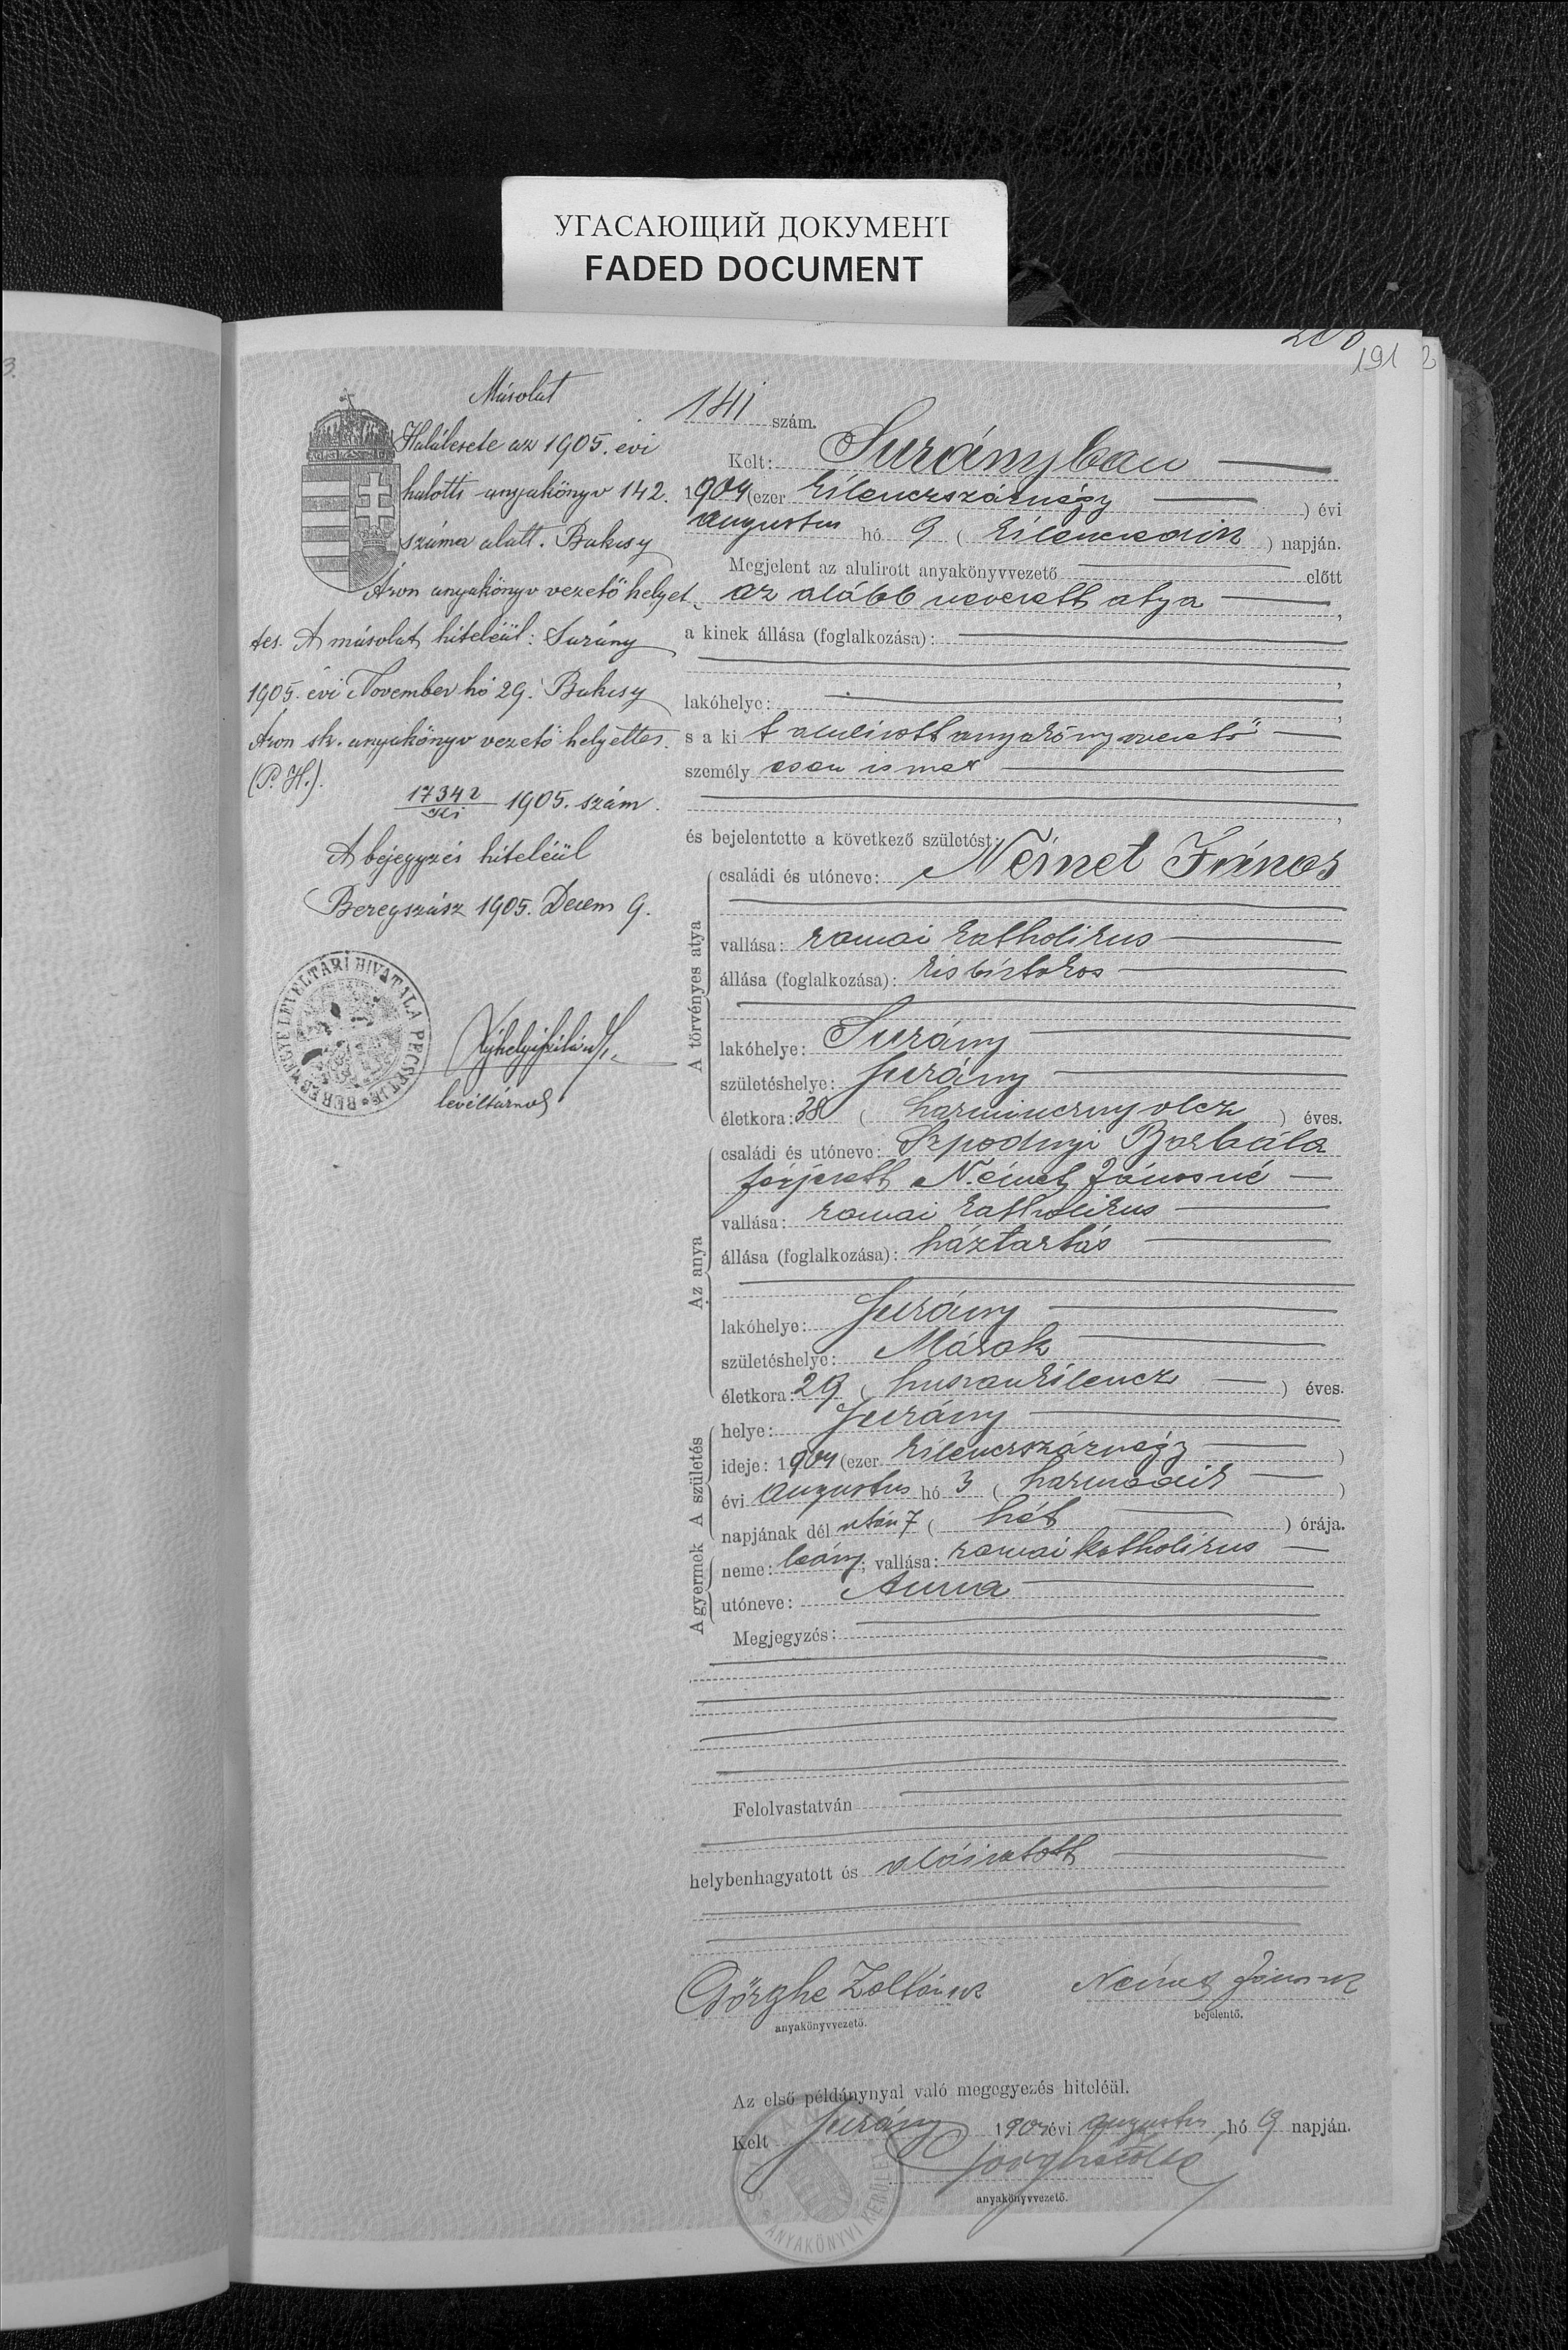 УГАСАЮЩИЙ ДОКУМЕНТ
FADED DOCUMENT
3.
200
191
2
Másolat
Halálesete az 1905. évi
halotti anyakönyv 142.
száma alatt. Bakcsy
Áron anyakönyv vezető helyet
tes. A másolat hiteléül: Surány
1905. évi November hó 29. Bakcsy
Áron sk. anyakönyv vezető helyettes.
(P. H.).
17342 1905. szám.
A bejegyzés hiteléül
Beregszász 1905. Decem 9.
BEREGMEGYE LEVÉLTÁRI HIVATALA PECSETJE
levéltárnok
141 szám.
Kelt: Surányban
1904 (ezer kilenczszáznégy) évi
augusztus hó 9 (kilenczedik) napján.
Megjelent az alulirott anyakönyvvezető előtt
az alább nevezett atya,
a kinek állása (foglalkozása):
lakóhelye:
s a ki t alulirott anyakönyvvezető
személy esen ismer
és bejelentette a következő születést:
A törvényes atya
családi és utóneve: Német János
vallása: romai katholikus
állása (foglalkozása): kisbirtokos
lakóhelye: Surány
születéshelye: Surány
életkora: 38 (harmincznyolcz) éves.
Az anya
családi és utóneve: Szpodnyi Borbála
férjezett Német Jánosné
vallása: romai katholikus
állása (foglalkozása): háztartás
lakóhelye: Surány
születéshelye: Márok
életkora: 29 (huszonkilencz) éves.
A születés
helye: Surány
ideje: 1904 (ezer kilenczszáznégy)
évi augusztus hó 3 (harmadik)
napjának dél után 7 (hét) órája.
A gyermek
neme: leány; vallása: romai katholikus
utóneve: Anna
Megjegyzés:
Felolvastatván
helybenhagyatott és aláiratott
Görghe Zoltán sk
anyakönyvvezető.
Német János sk
bejelentő.
Az első példánynyal való megegyezés hiteléül.
Kelt Surány 1904 évi augusztus hó 9 napján.
anyakönyvvezető.
ANYAKÖNYVI KERÜLET